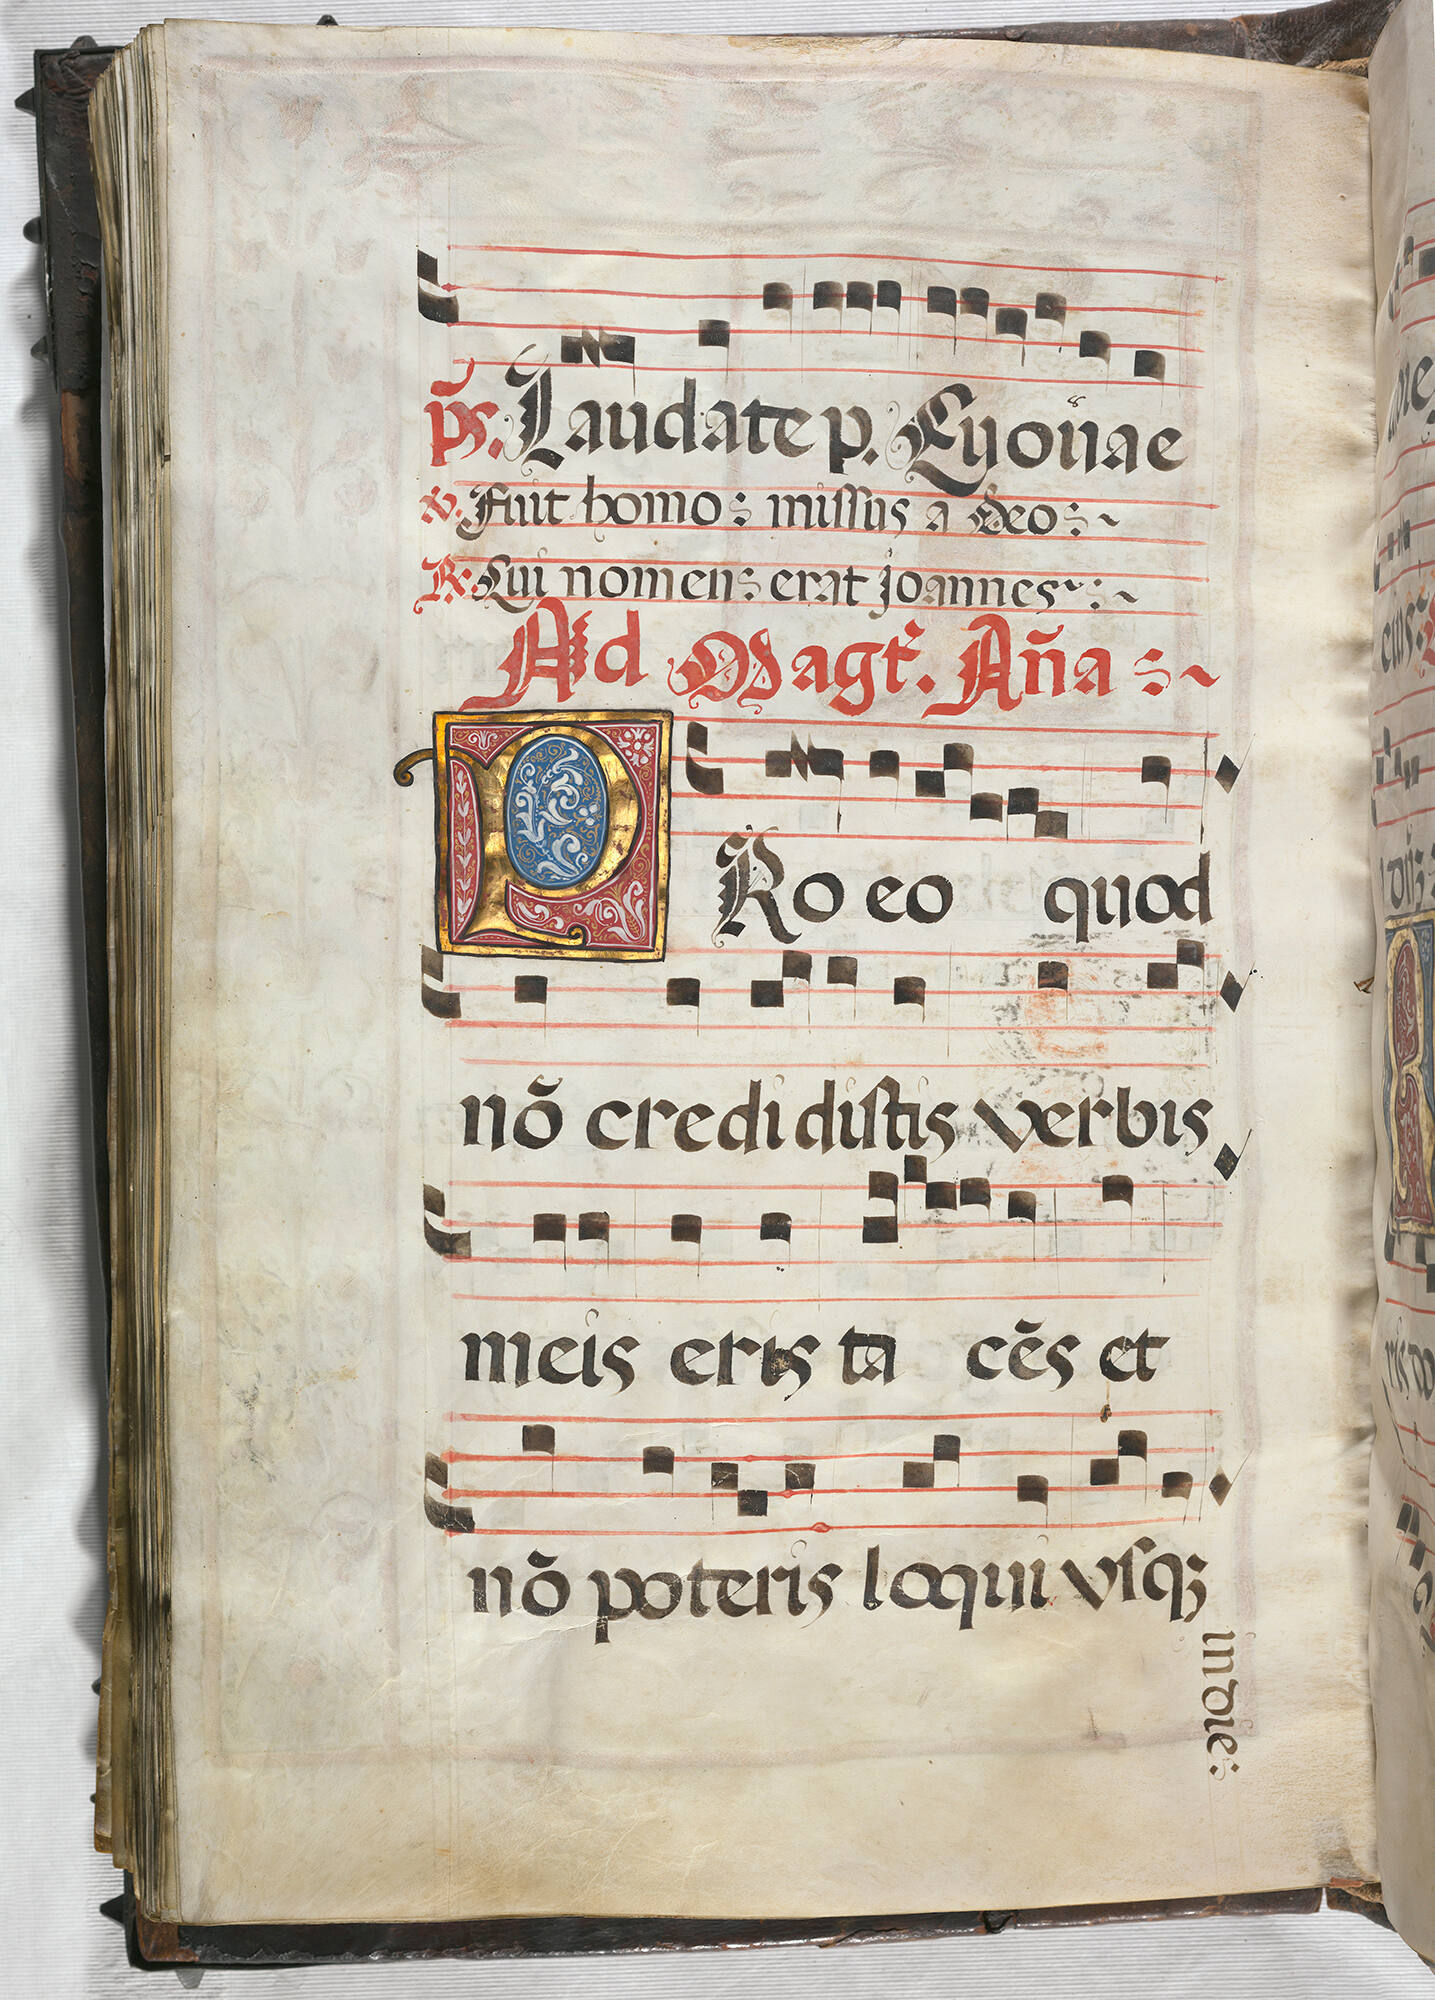 ps̃. Laudate p. Euouae
℣. Fuit homo: missus a deo:~
℟: Cui nomen: erat joannes~:~
Ad Magt̃. Añа:~
PRo eo quod
nõ credidistis verbis
meis eris ta cẽs et
nõ poteris loqui vsqꝫ
in die: